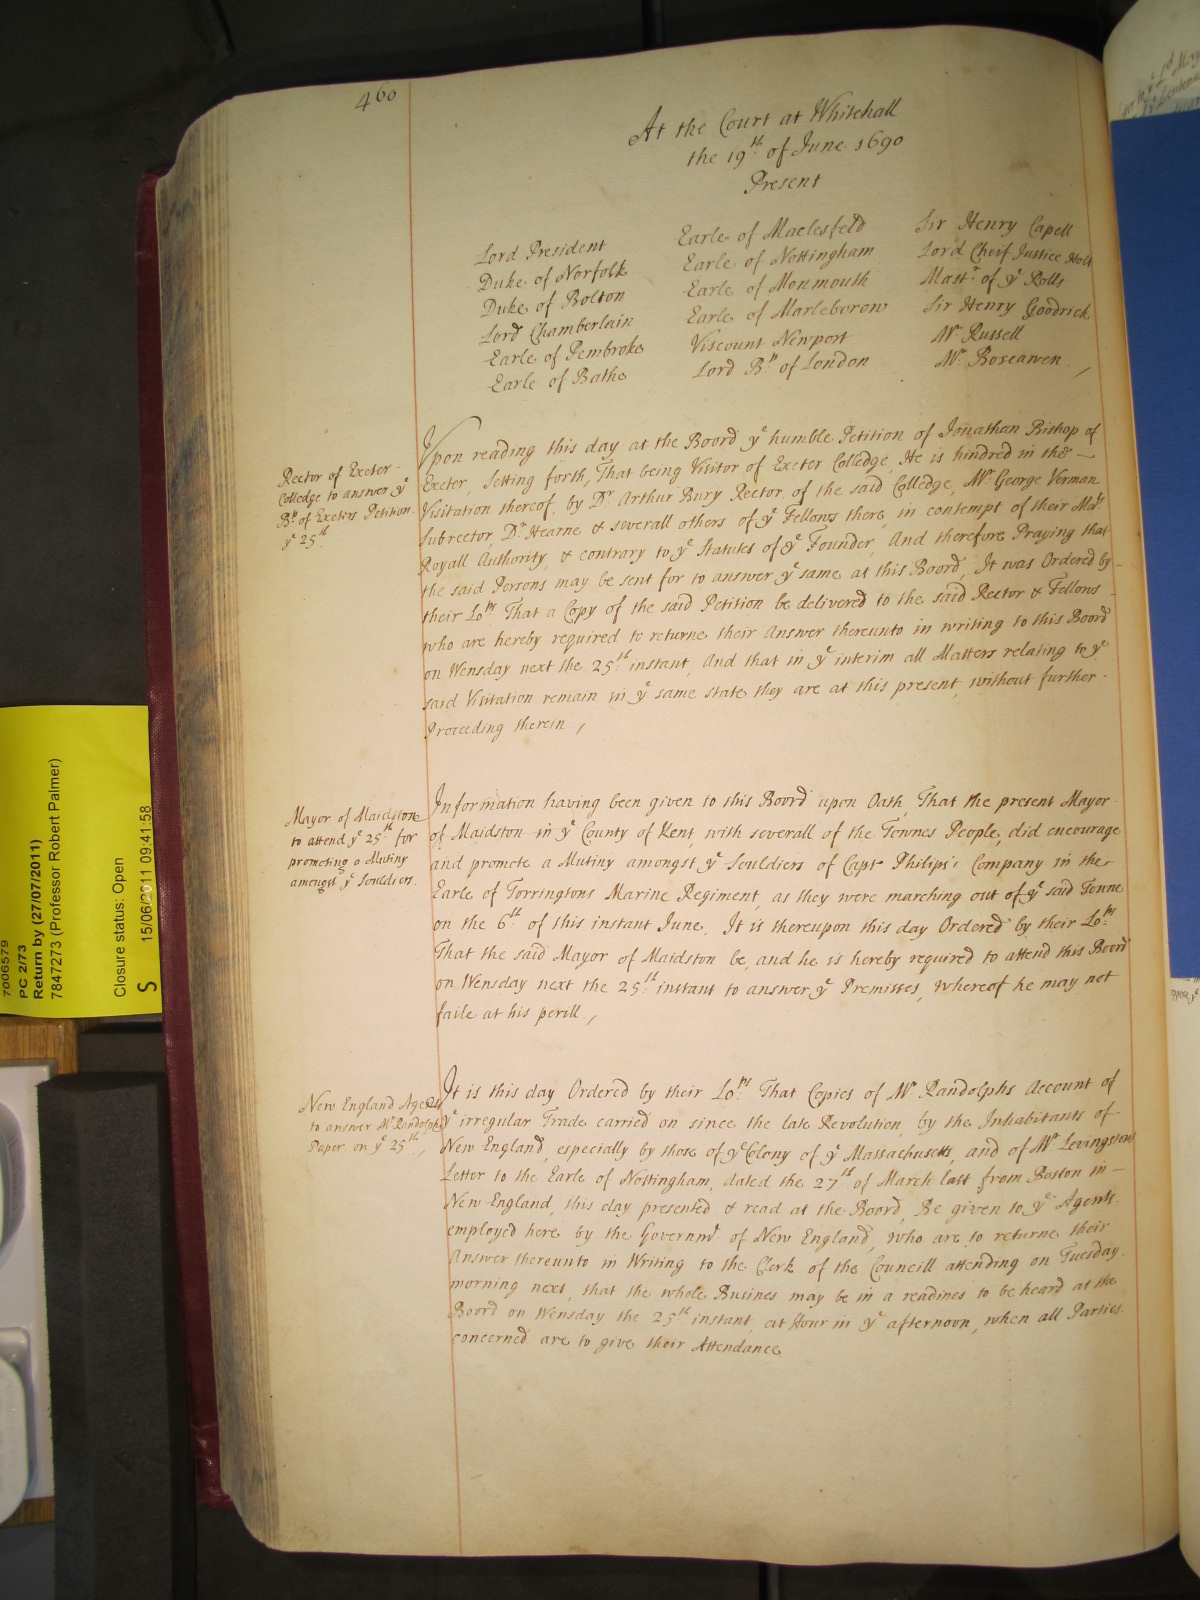 460
At the Court at Whitehall
the 19th of June 1690
Present
Lord President
Duke of Norfolk
Duke of Bolton
Lord Chamberlain
Earle of Pembroke
Earle of Bathe
Earle of Maclesfeld
Earle of Nottingham
Earle of Monmouth
Earle of Marleborow
Viscount Newport
Lord Bp of London
Sir Henry Capell
Lord Cheif Justice Holt
Mastr of ye Rolls
Sir Henry Goodrick
Mr Russell
Mr Boscawen
Rector of Exeter
Colledge to answer ye
Bp of Exeters Petition
ye 25th
Upon reading this day at the Board ye humble Petition of Jonathan Bishop of
Exeter, Setting forth, That being Visitor of Exeter Colledge, He is hindred in the
Visitation thereof, by Dr Arthur Bury Rector of the said Colledge, Mr George Verman
Subrector, Dr Hearne & severall others of ye Fellows there, in contempt of their Mats
Royall Authority, & contrary to ye Statutes of ye Founder, And therefore Praying that
the said Persons may be sent for to answer ye same at this Board, It was Ordered by
their Lops That a Copy of the said Petition be delivered to the said Rector & Fellows
who are hereby required to returne their Answer thereunto in writing to this Board
on Wensday next the 25th instant, And that in ye interim all Matters relating to ye
said Visitation remain in ye same state they are at this present, without further
Proceeding therein,
Mayor of Maidston
to attend ye 25th for
promoting a Mutiny
amongst ye Souldiers
Information having been given to this Board upon Oath, That the present Mayor
of Maidston in ye County of Kent, with severall of the Townes People, did encourage
and promote a Mutiny amongst ye Souldiers of Capt Philips's Company in the
Earle of Torringtons Marine Regiment, as they were marching out of ye said Towne
on the 6th of this instant June, It is thereupon this day Ordered by their Lops
That the said Mayor of Maidston be, and he is hereby required to attend this Board
on Wensday next the 25th instant to answer ye Premisses, whereof he may not
faile at his perill,
New England Agents
to answer Mr Randolphs
Paper on ye 25th,
It is this day Ordered by their Lops That Copies of Mr Randolphs Account of
ye irregular Trade carried on since the late Revolution, by the Inhabitants of
New England, especially by those of ye Colony of ye Massachusetts, and of Mr Levingstons
Letter to the Earle of Nottingham, dated the 27th of March last from Boston in
New England, this day presented & read at the Board, Be given to ye Agents
employed here by the Governmt of New England, who are to returne their
Answer thereunto in Writing to the Clerk of the Councill attending on Tuesday
morning next, that the whole Busines may be in a readines to be heard at the
Board on Wensday the 25th instant, at flour in ye afternoon, when all Parties
concerned are to give their Attendance
7006579
PC 2/73
Return by (27/07/2011)
7847273 (Professor Robert Palmer)
Closure status: Open
S 15/06/2011 09:41:58